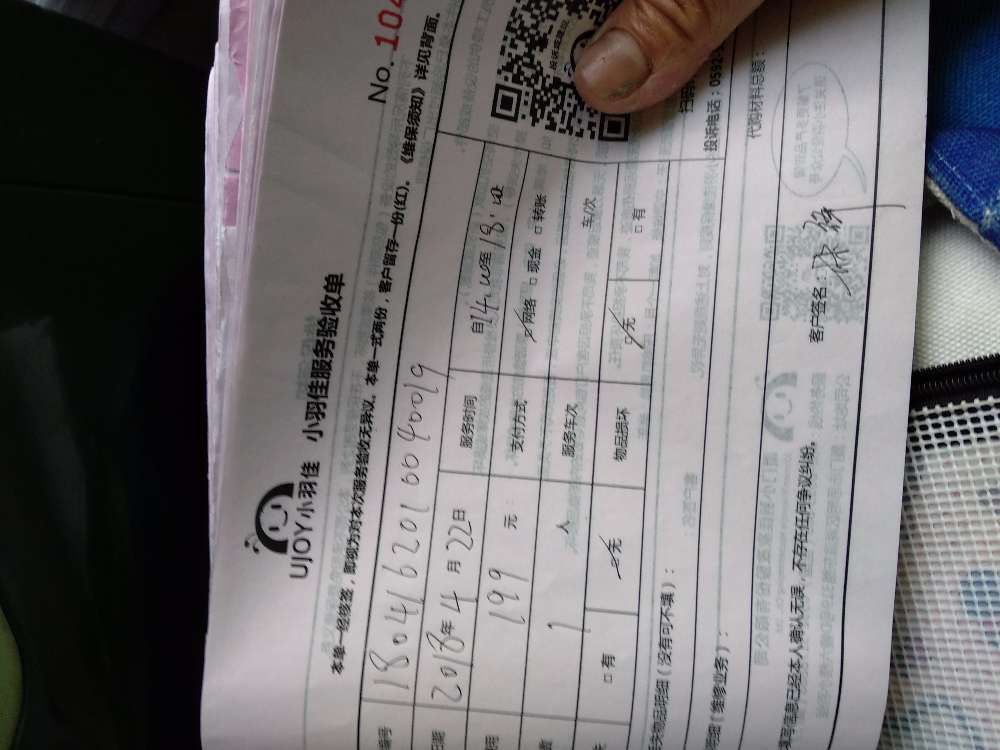 No. 104
UJOY小羽佳 小羽佳服务验收单
本单一经签签，即视为对本次服务验收无异议。本单一式两份，客户留存一份(红)。《维保须知》详见背面。
编号 1804162010040019
日期 2018年4月22日 服务时间 自14:00至18:00
199元 支付方式 ☑网络 □现金 □转账
数 1人 服务车次 车/次
□有 ☑无 物品损坏 ☑无 □有
投诉电话：0592-
失物品明细（没有可不填）：
明细（维修业务）： 代购材料总额：
填写信息已经本人确认无误，不存在任何争议纠纷。 客户签名：